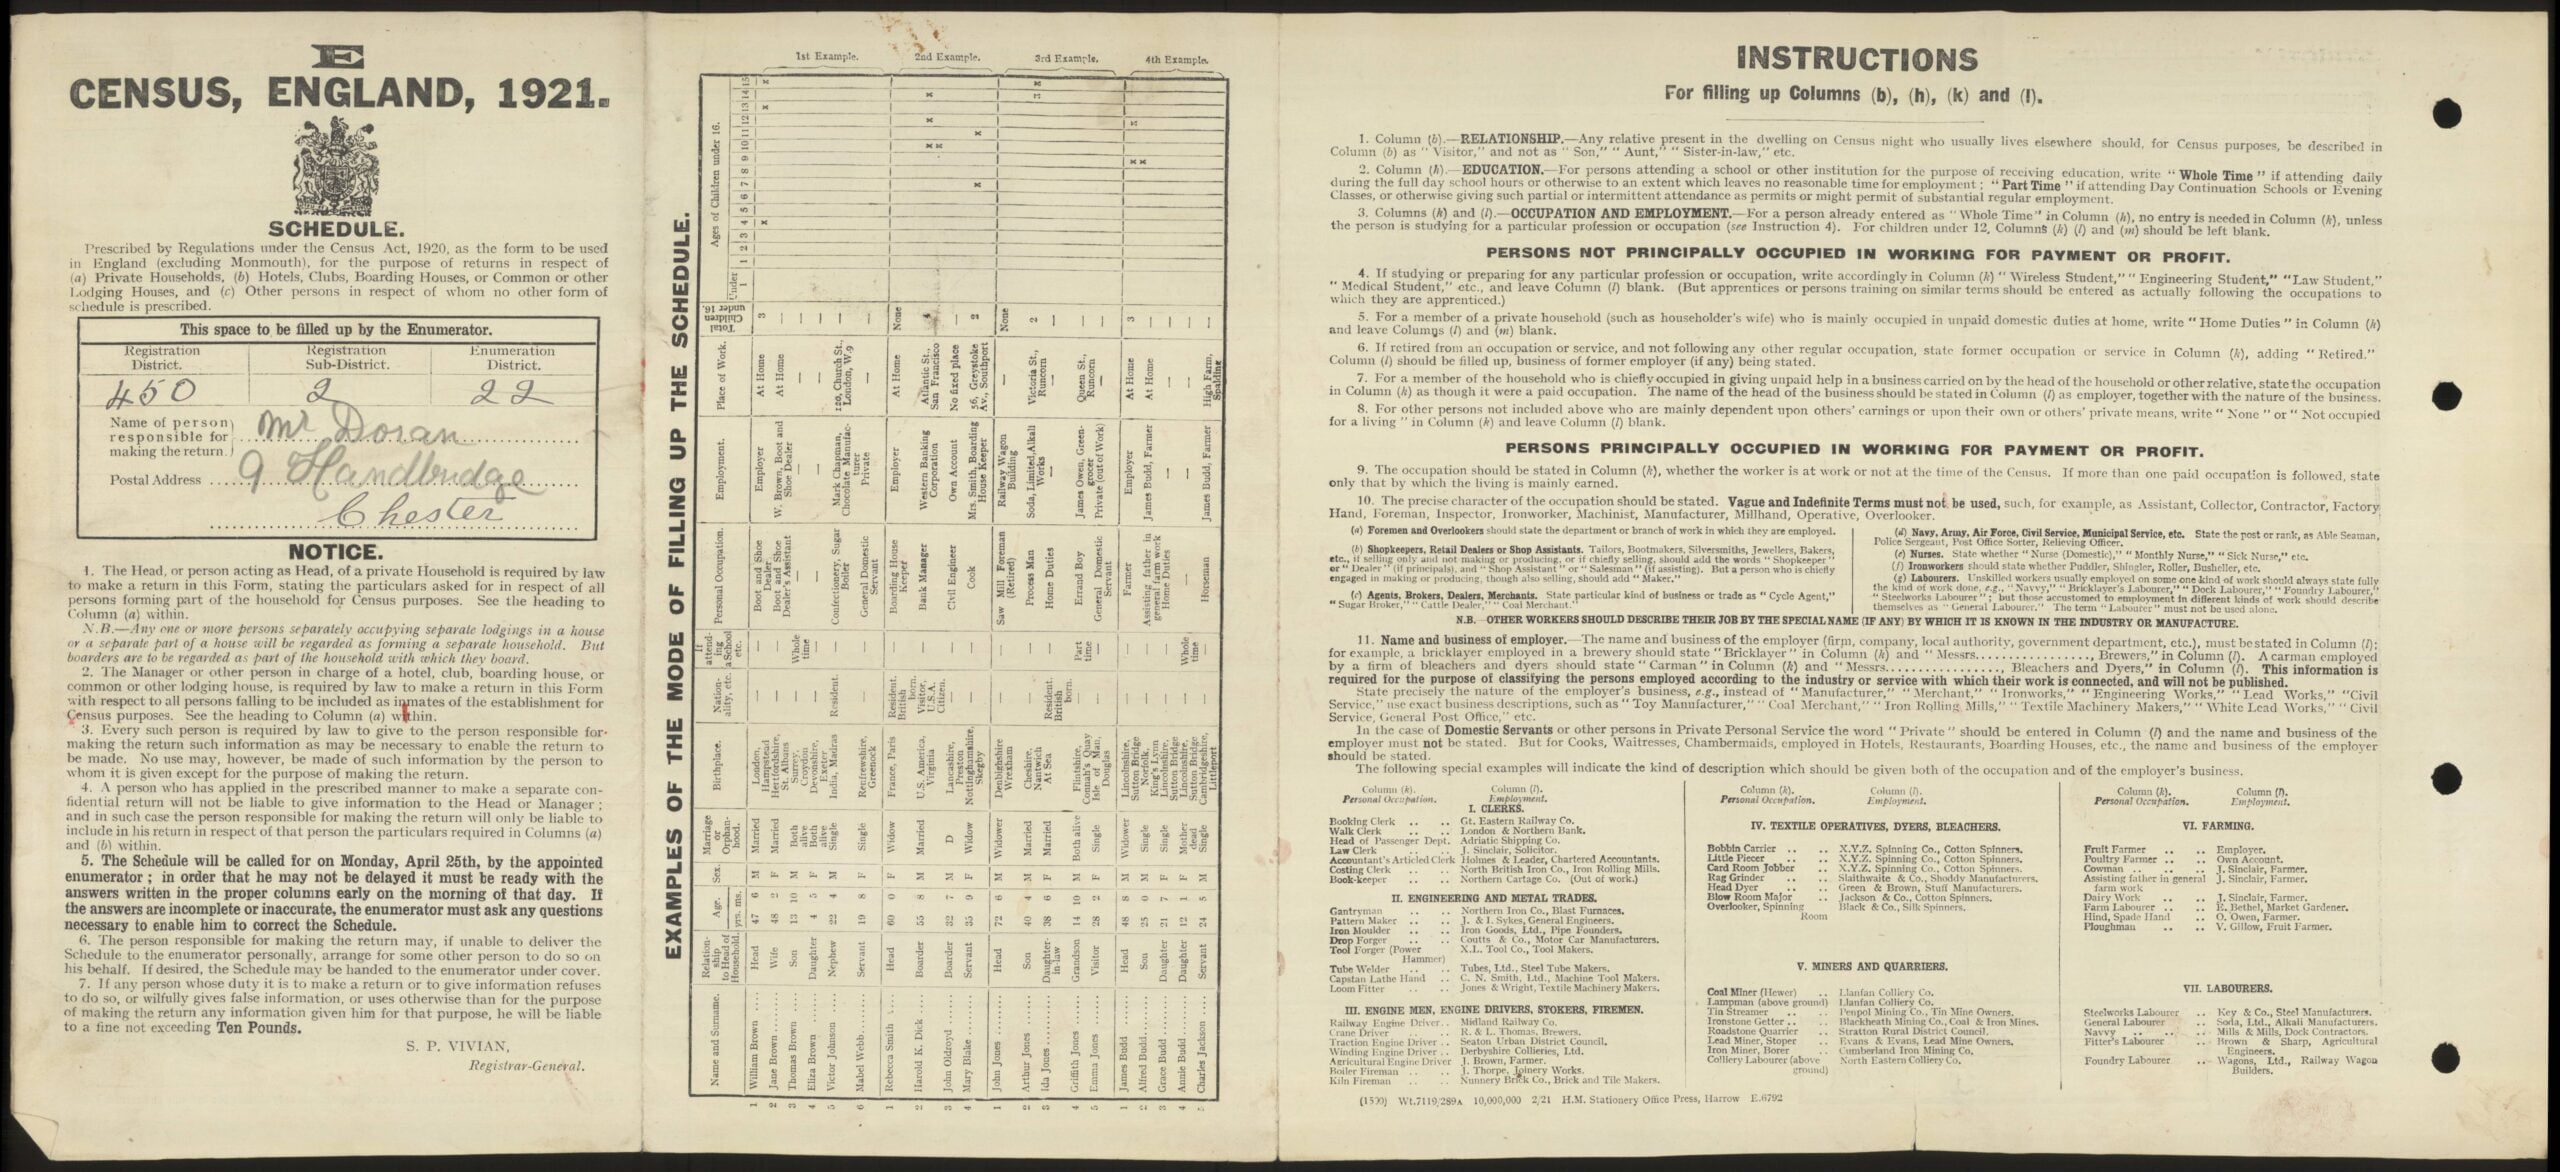 E
CENSUS, ENGLAND, 1921.
SCHEDULE.
Prescribed by Regulations under the Census Act, 1920, as the form to be used
in England (excluding Monmouth), for the purpose of returns in respect of
(a) Private Households, (b) Hotels, Clubs, Boarding Houses, or Common or other
Lodging Houses, and (c) Other persons in respect of whom no other form of
schedule is prescribed.
This space to be filled up by the Enumerator.
Registration District. Registration Sub-District. Enumeration District.
450 2 22
Name of person responsible for making the return. Mr Doran
Postal Address 9 Handbridge
Chester
NOTICE.
1. The Head, or person acting as Head, of a private Household is required by law
to make a return in this Form, stating the particulars asked for in respect of all
persons forming part of the household for Census purposes. See the heading to
Column (a) within.
N.B.—Any one or more persons separately occupying separate lodgings in a house
or a separate part of a house will be regarded as forming a separate household. But
boarders are to be regarded as part of the household with which they board.
2. The Manager or other person in charge of a hotel, club, boarding house, or
common or other lodging house, is required by law to make a return in this Form
with respect to all persons falling to be included as inmates of the establishment for
Census purposes. See the heading to Column (a) within.
3. Every such person is required by law to give to the person responsible for
making the return such information as may be necessary to enable the return to
be made. No use may, however, be made of such information by the person to
whom it is given except for the purpose of making the return.
4. A person who has applied in the prescribed manner to make a separate con-
fidential return will not be liable to give information to the Head or Manager ;
and in such case the person responsible for making the return will only be liable to
include in his return in respect of that person the particulars required in Columns (a)
and (b) within.
5. The Schedule will be called for on Monday, April 25th, by the appointed
enumerator ; in order that he may not be delayed it must be ready with the
answers written in the proper columns early on the morning of that day. If
the answers are incomplete or inaccurate, the enumerator must ask any questions
necessary to enable him to correct the Schedule.
6. The person responsible for making the return may, if unable to deliver the
Schedule to the enumerator personally, arrange for some other person to do so on
his behalf. If desired, the Schedule may be handed to the enumerator under cover.
7. If any person whose duty it is to make a return or to give information refuses
to do so, or wilfully gives false information, or uses otherwise than for the purpose
of making the return any information given him for that purpose, he will be liable
to a fine not exceeding Ten Pounds.
S. P. VIVIAN,
Registrar-General.
EXAMPLES OF THE MODE OF FILLING UP THE SCHEDULE.
Name and Surname. Relation-ship to Head of Household. Age. yrs. ms. Sex. Marriage or Orphan-hood. Birthplace. Nation-ality, etc. If attend-ing a School etc. Personal Occupation. Employment. Place of Work. Total Children under 16. Ages of Children under 16.
Under 1 1 2 3 4 5 6 7 8 9 10 11 12 13 14 15
1st Example.
1 William Brown Head 47 6 M Married London, Hampstead — — Boot and Shoe Dealer Employer At Home 3 x x x
2 Jane Brown Wife 48 2 F Married Hertfordshire, St. Albans — — Boot and Shoe Dealer's Assistant W. Brown, Boot and Shoe Dealer At Home —
3 Thomas Brown Son 13 10 M Both alive Surrey, Croydon — Whole time — — — —
4 Eliza Brown Daughter 4 5 F Both alive Devonshire, Exeter — — — — — —
5 Victor Johnson Nephew 22 4 M Single India, Madras Resident. — Confectionery, Sugar Boiler Mark Chapman, Chocolate Manufac-turer 120, Church St., London, W.9 —
6 Mabel Webb Servant 19 8 F Single Renfrewshire, Greenock — — General Domestic Servant Private — —
2nd Example.
1 Rebecca Smith Head 60 0 F Widow France, Paris Resident, British born. — Boarding House Keeper Employer At Home None
2 Harold K. Dick Boarder 55 8 M Married U.S. America, Virginia Visitor, U.S.A. Citizen. — Bank Manager Western Banking Corporation Atlantic St., San Francisco 4 x x x x
3 John Oldroyd Boarder 32 7 M D Lancashire, Preston — — Civil Engineer Own Account No fixed place —
4 Mary Blake Servant 35 9 F Widow Nottinghamshire, Skegby — — Cook Mrs. Smith, Boarding House Keeper 56, Greystoke Av., Southport 2 x x
3rd Example.
1 John Jones Head 72 6 M Widower Denbighshire Wrexham — — Saw Mill Foreman (Retired) Railway Wagon Building — None
2 Arthur Jones Son 40 4 M Married Cheshire, Nantwich — — Process Man Soda, Limited, Alkali Works Victoria St., Runcorn 2 x x
3 Ida Jones Daughter-in-law 38 6 F Married At Sea Resident. British born. — Home Duties — — —
4 Griffith Jones Grandson 14 10 M Both alive Flintshire, Connah's Quay — Part time Errand Boy James Owen, Green-grocer Queen St., Runcorn —
5 Emma Jones Visitor 28 2 F Single Isle of Man, Douglas — — General Domestic Servant Private (out of Work) — —
4th Example.
1 James Budd Head 48 8 M Widower Lincolnshire, Sutton Bridge — — Farmer Employer At Home 3 x x x
2 Alfred Budd Son 25 0 M Single Norfolk, King's Lynn — — Assisting father in general farm work James Budd, Farmer At Home —
3 Grace Budd Daughter 21 7 F Single Lincolnshire, Sutton Bridge — — Home Duties — — —
4 Annie Budd Daughter 12 1 F Mother dead Lincolnshire, Sutton Bridge — Whole time — — — —
5 Charles Jackson Servant 24 5 M Single Cambridgeshire, Littleport — — Horseman James Budd, Farmer High Farm, Spalding —
INSTRUCTIONS
For filling up Columns (b), (h), (k) and (l).
1. Column (b).—RELATIONSHIP.—Any relative present in the dwelling on Census night who usually lives elsewhere should, for Census purposes, be described in
Column (b) as "Visitor," and not as "Son," "Aunt," "Sister-in-law," etc.
2. Column (h).—EDUCATION.—For persons attending a school or other institution for the purpose of receiving education, write "Whole Time" if attending daily
during the full day school hours or otherwise to an extent which leaves no reasonable time for employment ; "Part Time" if attending Day Continuation Schools or Evening
Classes, or otherwise giving such partial or intermittent attendance as permits or might permit of substantial regular employment.
3. Columns (k) and (l).—OCCUPATION AND EMPLOYMENT.—For a person already entered as "Whole Time" in Column (h), no entry is needed in Column (k), unless
the person is studying for a particular profession or occupation (see Instruction 4). For children under 12, Columns (k) (l) and (m) should be left blank.
PERSONS NOT PRINCIPALLY OCCUPIED IN WORKING FOR PAYMENT OR PROFIT.
4. If studying or preparing for any particular profession or occupation, write accordingly in Column (k) "Wireless Student," "Engineering Student," "Law Student,"
"Medical Student," etc., and leave Column (l) blank. (But apprentices or persons training on similar terms should be entered as actually following the occupations to
which they are apprenticed.)
5. For a member of a private household (such as householder's wife) who is mainly occupied in unpaid domestic duties at home, write "Home Duties" in Column (k)
and leave Columns (l) and (m) blank.
6. If retired from an occupation or service, and not following any other regular occupation, state former occupation or service in Column (k), adding "Retired."
Column (l) should be filled up, business of former employer (if any) being stated.
7. For a member of the household who is chiefly occupied in giving unpaid help in a business carried on by the head of the household or other relative, state the occupation
in Column (k) as though it were a paid occupation. The name of the head of the business should be stated in Column (l) as employer, together with the nature of the business.
8. For other persons not included above who are mainly dependent upon others' earnings or upon their own or others' private means, write "None" or "Not occupied
for a living" in Column (k) and leave Column (l) blank.
PERSONS PRINCIPALLY OCCUPIED IN WORKING FOR PAYMENT OR PROFIT.
9. The occupation should be stated in Column (k), whether the worker is at work or not at the time of the Census. If more than one paid occupation is followed, state
only that by which the living is mainly earned.
10. The precise character of the occupation should be stated. Vague and Indefinite Terms must not be used, such, for example, as Assistant, Collector, Contractor, Factory
Hand, Foreman, Inspector, Ironworker, Machinist, Manufacturer, Millhand, Operative, Overlooker.
(a) Foremen and Overlookers should state the department or branch of work in which they are employed.
(b) Shopkeepers, Retail Dealers or Shop Assistants. Tailors, Bootmakers, Silversmiths, Jewellers, Bakers,
etc., if selling only and not making or producing, or if chiefly selling, should add the words "Shopkeeper"
or "Dealer" (if principals), and "Shop Assistant" or "Salesman" (if assisting). But a person who is chiefly
engaged in making or producing, though also selling, should add "Maker."
(c) Agents, Brokers, Dealers, Merchants. State particular kind of business or trade as "Cycle Agent,"
"Sugar Broker," "Cattle Dealer," "Coal Merchant."
(d) Navy, Army, Air Force, Civil Service, Municipal Service, etc. State the post or rank, as Able Seaman,
Police Sergeant, Post Office Sorter, Relieving Officer.
(e) Nurses. State whether "Nurse (Domestic)," "Monthly Nurse," "Sick Nurse," etc.
(f) Ironworkers should state whether Puddler, Shingler, Roller, Busheller, etc.
(g) Labourers. Unskilled workers usually employed on some one kind of work should always state fully
the kind of work done, e.g., "Navvy," "Bricklayer's Labourer," "Dock Labourer," "Foundry Labourer,"
"Steelworks Labourer" ; but those accustomed to employment in different kinds of work should describe
themselves as "General Labourer." The term "Labourer" must not be used alone.
N.B.—OTHER WORKERS SHOULD DESCRIBE THEIR JOB BY THE SPECIAL NAME (IF ANY) BY WHICH IT IS KNOWN IN THE INDUSTRY OR MANUFACTURE.
11. Name and business of employer.—The name and business of the employer (firm, company, local authority, government department, etc.), must be stated in Column (l);
for example, a bricklayer employed in a brewery should state "Bricklayer" in Column (k) and "Messrs................, Brewers," in Column (l). A carman employed
by a firm of bleachers and dyers should state "Carman" in Column (k) and "Messrs................, Bleachers and Dyers," in Column (l). This information is
required for the purpose of classifying the persons employed according to the industry or service with which their work is connected, and will not be published.
State precisely the nature of the employer's business, e.g., instead of "Manufacturer," "Merchant," "Ironworks," "Engineering Works," "Lead Works," "Civil
Service," use exact business descriptions, such as "Toy Manufacturer," "Coal Merchant," "Iron Rolling Mills," "Textile Machinery Makers," "White Lead Works," "Civil
Service, General Post Office," etc.
In the case of Domestic Servants or other persons in Private Personal Service the word "Private" should be entered in Column (l) and the name and business of the
employer must not be stated. But for Cooks, Waitresses, Chambermaids, employed in Hotels, Restaurants, Boarding Houses, etc., the name and business of the employer
should be stated.
The following special examples will indicate the kind of description which should be given both of the occupation and of the employer's business.
Column (k). Personal Occupation. Column (l). Employment.
I. CLERKS.
Booking Clerk .. .. Gt. Eastern Railway Co.
Walk Clerk .. .. London & Northern Bank.
Head of Passenger Dept. Adriatic Shipping Co.
Law Clerk .. .. J. Sinclair, Solicitor.
Accountant's Articled Clerk Holmes & Leader, Chartered Accountants.
Costing Clerk .. .. North British Iron Co., Iron Rolling Mills.
Book-keeper .. .. Northern Cartage Co. (Out of Work.)
II. ENGINEERING AND METAL TRADES.
Gantryman .. .. Northern Iron Co., Blast Furnaces.
Pattern Maker .. .. J. & I. Sykes, General Engineers.
Iron Moulder .. .. Iron Goods, Ltd., Pipe Founders.
Drop Forger .. .. Coutts & Co., Motor Car Manufacturers.
Tool Forger (Power Hammer) X.L. Tool Co., Tool Makers.
Tube Welder .. .. Tubes, Ltd., Steel Tube Makers.
Capstan Lathe Hand .. C. N. Smith, Ltd., Machine Tool Makers.
Loom Fitter .. .. Jones & Wright, Textile Machinery Makers.
III. ENGINE MEN, ENGINE DRIVERS, STOKERS, FIREMEN.
Railway Engine Driver .. Midland Railway Co.
Crane Driver .. .. R. & L. Thomas, Brewers.
Traction Engine Driver .. Seaton Urban District Council.
Winding Engine Driver .. Derbyshire Collieries, Ltd.
Agricultural Engine Driver J. Brown, Farmer.
Boiler Fireman .. .. J. Thorpe, Joinery Works.
Kiln Fireman .. .. Nunnery Brick Co., Brick and Tile Makers.
Column (k). Personal Occupation. Column (l). Employment.
IV. TEXTILE OPERATIVES, DYERS, BLEACHERS.
Bobbin Carrier .. .. X.Y.Z. Spinning Co., Cotton Spinners.
Little Piecer .. .. X.Y.Z. Spinning Co., Cotton Spinners.
Card Room Jobber .. Slaithwaite & Co., Shoddy Manufacturers.
Rag Grinder .. .. Green & Brown, Stuff Manufacturers.
Head Dyer .. .. Jackson & Co., Cotton Spinners.
Blow Room Major .. Black & Co., Silk Spinners.
Overlooker, Spinning Room
V. MINERS AND QUARRIERS.
Coal Miner (Hewer) .. Llanfan Colliery Co.
Lampman (above ground) Llanfan Colliery Co.
Tin Streamer .. .. Penpol Mining Co., Tin Mine Owners.
Ironstone Getter .. .. Blackheath Mining Co., Coal & Iron Mines.
Roadstone Quarrier .. Stratton Rural District Council.
Lead Miner, Stoper .. Evans & Evans, Lead Mine Owners.
Iron Miner, Borer .. Cumberland Iron Mining Co.
Colliery Labourer (above ground) North Eastern Colliery Co.
Column (k). Personal Occupation. Column (l). Employment.
VI. FARMING.
Fruit Farmer .. .. Employer.
Poultry Farmer .. .. Own Account.
Cowman .. .. J. Sinclair, Farmer.
Assisting father in general farm work J. Sinclair, Farmer.
Dairy Work .. .. J. Sinclair, Farmer.
Farm Labourer .. .. E. Bethel, Market Gardener.
Hind, Spade Hand .. O. Owen, Farmer.
Ploughman .. .. V. Gillow, Fruit Farmer.
VII. LABOURERS.
Steelworks Labourer .. Key & Co., Steel Manufacturers.
General Labourer .. Soda, Ltd., Alkali Manufacturers.
Navvy .. .. Mills & Mills, Dock Contractors.
Fitter's Labourer .. Brown & Sharp, Agricultural Engineers.
Foundry Labourer .. Wagons, Ltd., Railway Wagon Builders.
(1590) Wt.7119/289A 10,000,000 2/21 H.M. Stationery Office Press, Harrow E.6792